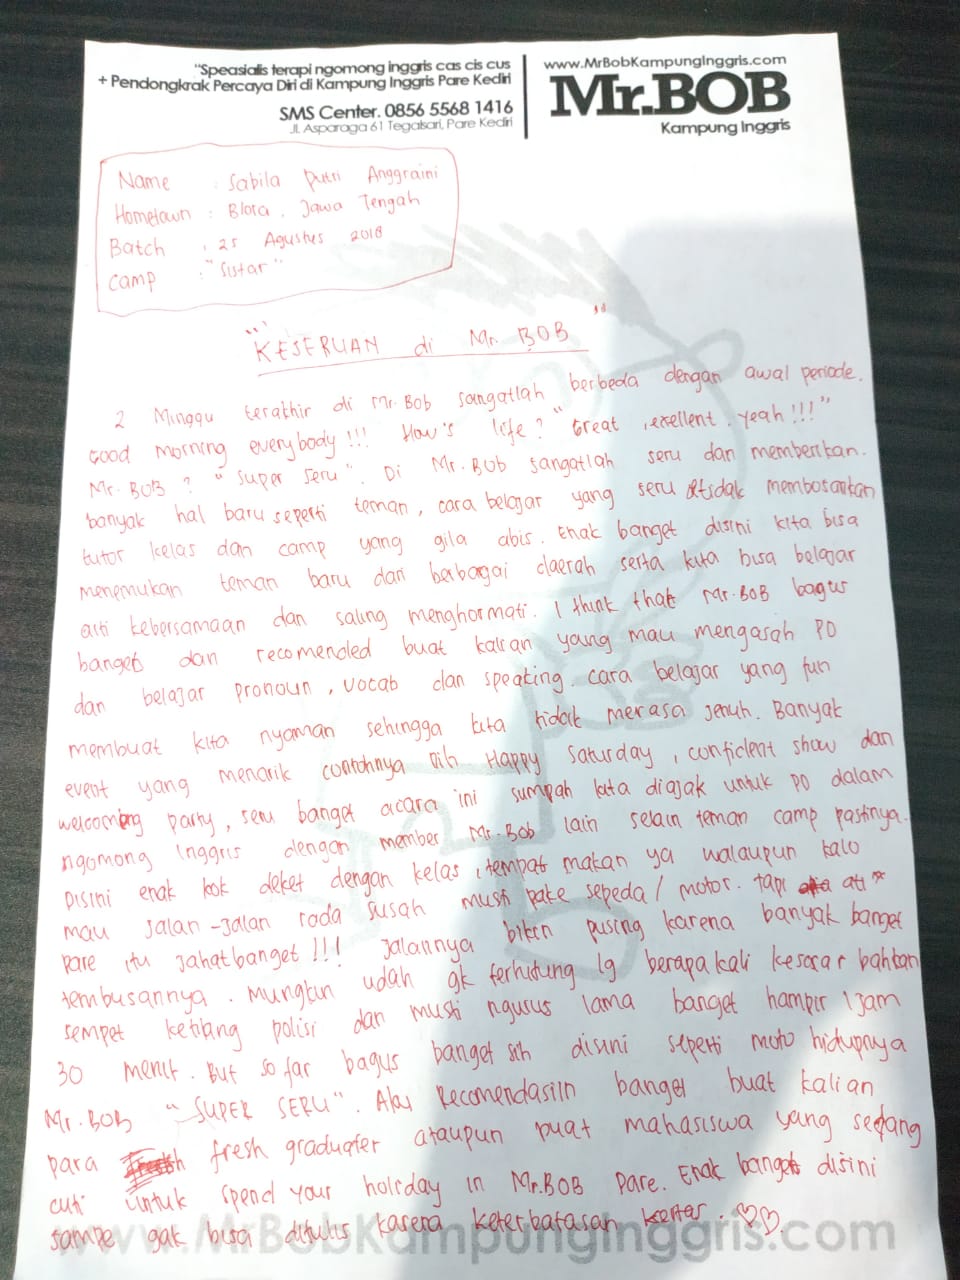 "Speasialis terapi ngomong inggris cas cis cus
+ Pendongkrak Percaya Diri di Kampung Inggris Pare Kediri
SMS Center. 0856 5568 1416
Jl. Asparaga 61 Tegalsari, Pare Kediri
www.MrBobKampungInggris.com
Mr.BOB
Kampung Inggris
Name : Sabila Putri Anggraini
Hometown : Blora, Jawa Tengah
Batch : 25 Agustus 2018
Camp : "Sistar"
"KESERUAN di Mr. BOB"
2 Minggu terakhir di Mr. Bob sangatlah berbeda dengan awal periode.
Good morning everybody!!! How's life? "Great, exellent, yeah!!!"
Mr. BOB? "Super Seru". Di Mr. Bob sangatlah seru dan memberikan
banyak hal baru seperti teman, cara belajar yang seru tidak membosankan
tutor kelas dan camp yang gila abis. Enak banget disini kita bisa
menemukan teman baru dari berbagai daerah serta kita bisa belajar
arti kebersamaan dan saling menghormati. I think that Mr. BOB bagus
banget dan recomended buat kalian yang mau mengasah PD
dan belajar pronoun, vocab dan speaking. cara belajar yang fun
membuat kita nyaman sehingga kita tidak merasa jenuh. Banyak
event yang menarik contohnya nih Happy Saturday, confident show dan
welcoming party, seru banget acara ini sumpah kita diajak untuk PD dalam
ngomong Inggris dengan member Mr. Bob lain selain teman camp pastinya.
Disini enak kok deket dengan kelas, tempat makan ya walaupun kalo
mau jalan-jalan rada susah musti pake sepeda / motor. tapi ati"
Pare itu jahat banget!!! jalannya bikin pusing karena banyak banget
tembusannya. Mungkin udah gk terhitung lg berapa kali kesasar bahkan
sempet ketilang polisi dan musti ngurus lama banget hampir 1 jam
30 menit. But so far bagus banget sih disini seperti moto hidupnya
Mr. BOB "SUPER SERU". Aku Recomendasiin banget buat kalian
para fresh graduater ataupun buat mahasiswa yang sedang
cuti untuk spend your holiday in Mr. BOB Pare. Enak banget disini
sampe gak bisa ditulis karena keterbatasan kertas.
www.MrBobKampungInggris.com